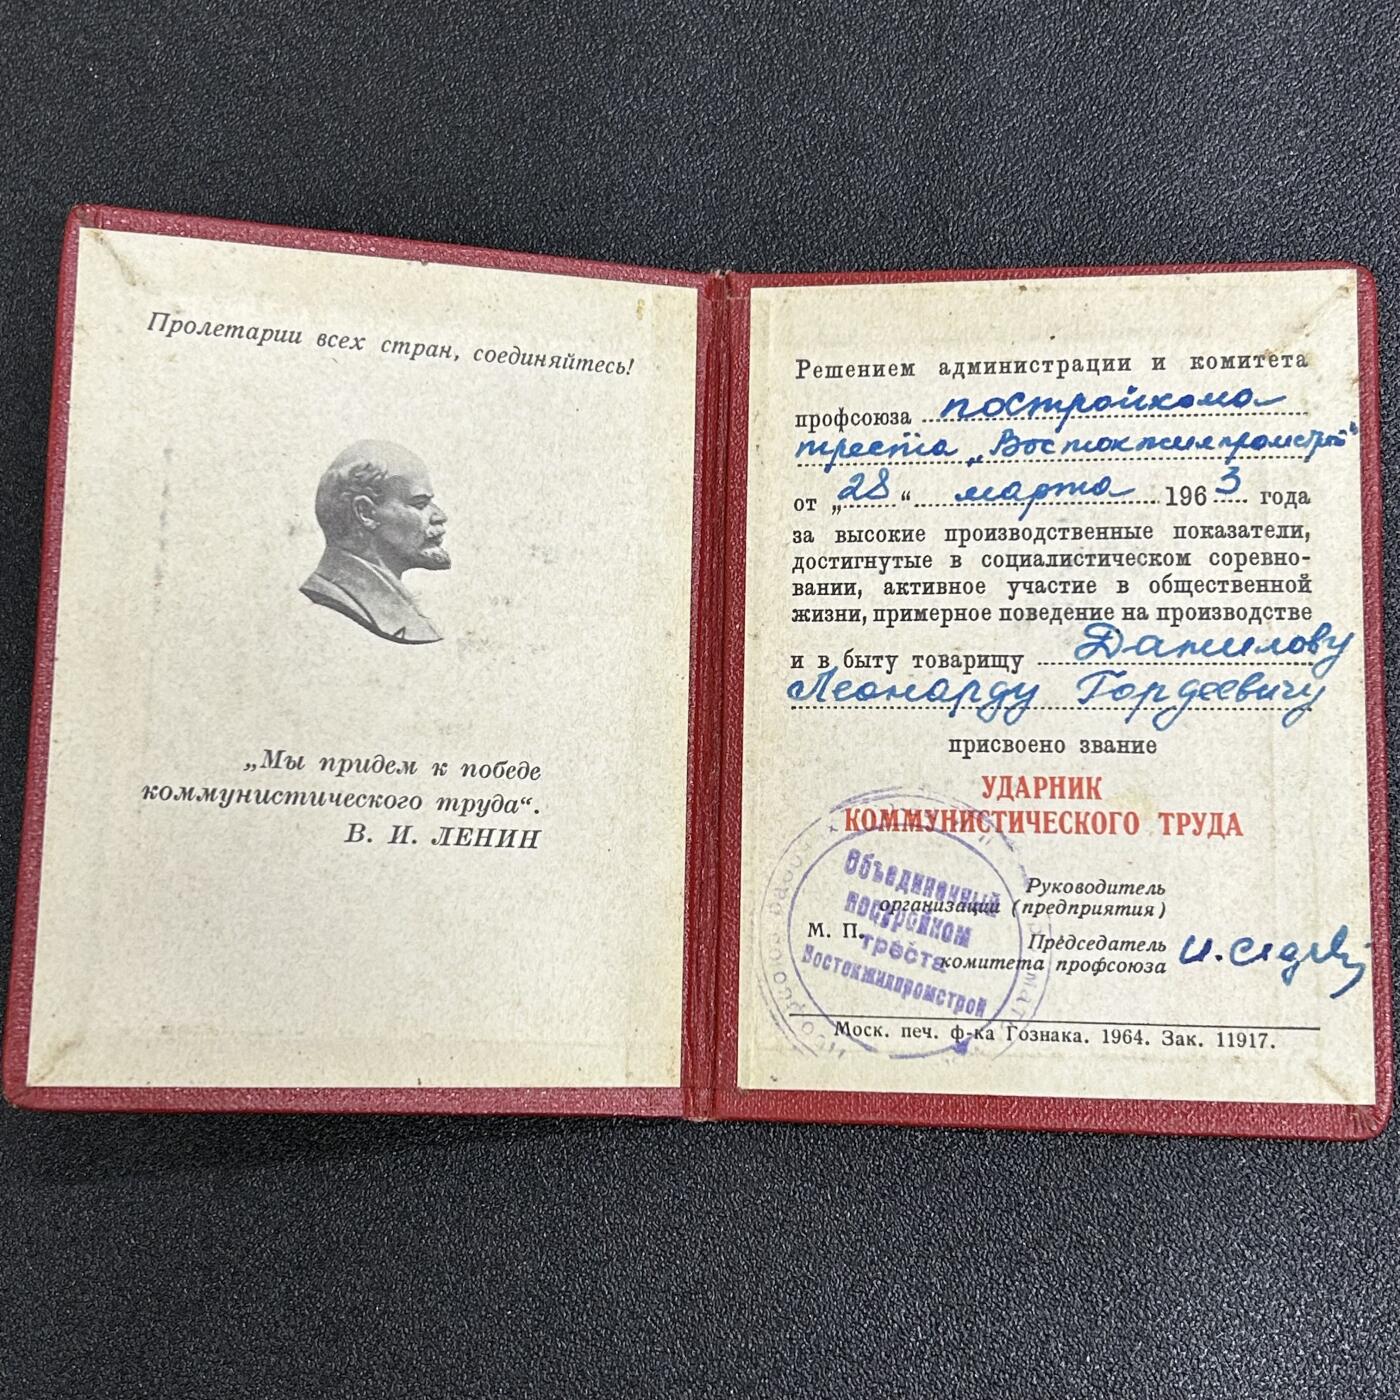 Пролетарии всех стран, соединяйтесь!
„Мы придем к победе
коммунистического труда“.
В. И. ЛЕНИН
Решением администрации и комитета
профсоюза постройкома
треста „Востокжилпромстрой“
от „28“ марта 1963 года
за высокие производственные показатели,
достигнутые в социалистическом соревно-
вании, активное участие в общественной
жизни, примерное поведение на производстве
и в быту товарищу Данилову
Леонарду Гордеевичу
присвоено звание
УДАРНИК
КОММУНИСТИЧЕСКОГО ТРУДА
Руководитель
организации (предприятия)
М. П.
Председатель
комитета профсоюза
Объединенный
постройком
треста
Востокжилпромстрой
Моск. печ. ф-ка Гознака. 1964. Зак. 11917.